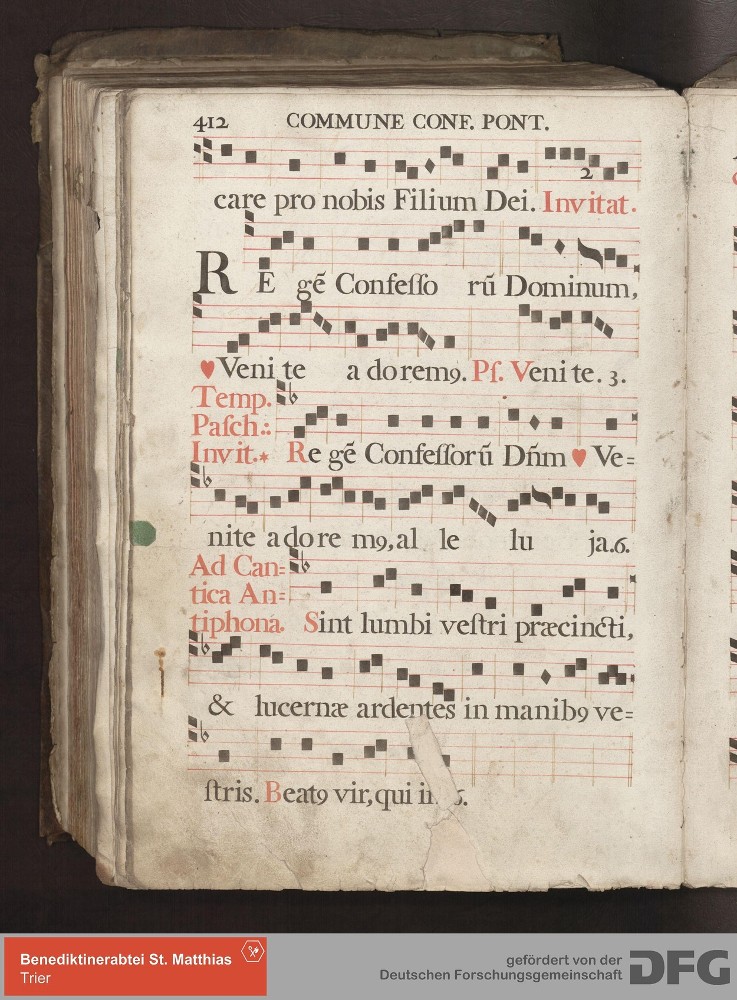 412 COMMUNE CONF. PONT.
2
care pro nobis Filium Dei. Invitat.
RE gē Confeſſo rū Dominum,
♥ Veni te a do rem9. Pſ. Venite. 3.
Temp.
Paſch.:
Invit.* Re gē Confeſſorū Dn̄m ♥ Ve=
nite adore m9, al le lu ja. 6.
Ad Can=
tica An=
tiphona. Sint lumbi veſtri præcincti,
& lucernæ ardentes in manib9 ve=
ſtris. Beat9 vir, qui
Benediktinerabtei St. Matthias
Trier
gefördert von der
Deutschen Forschungsgemeinschaft
DFG